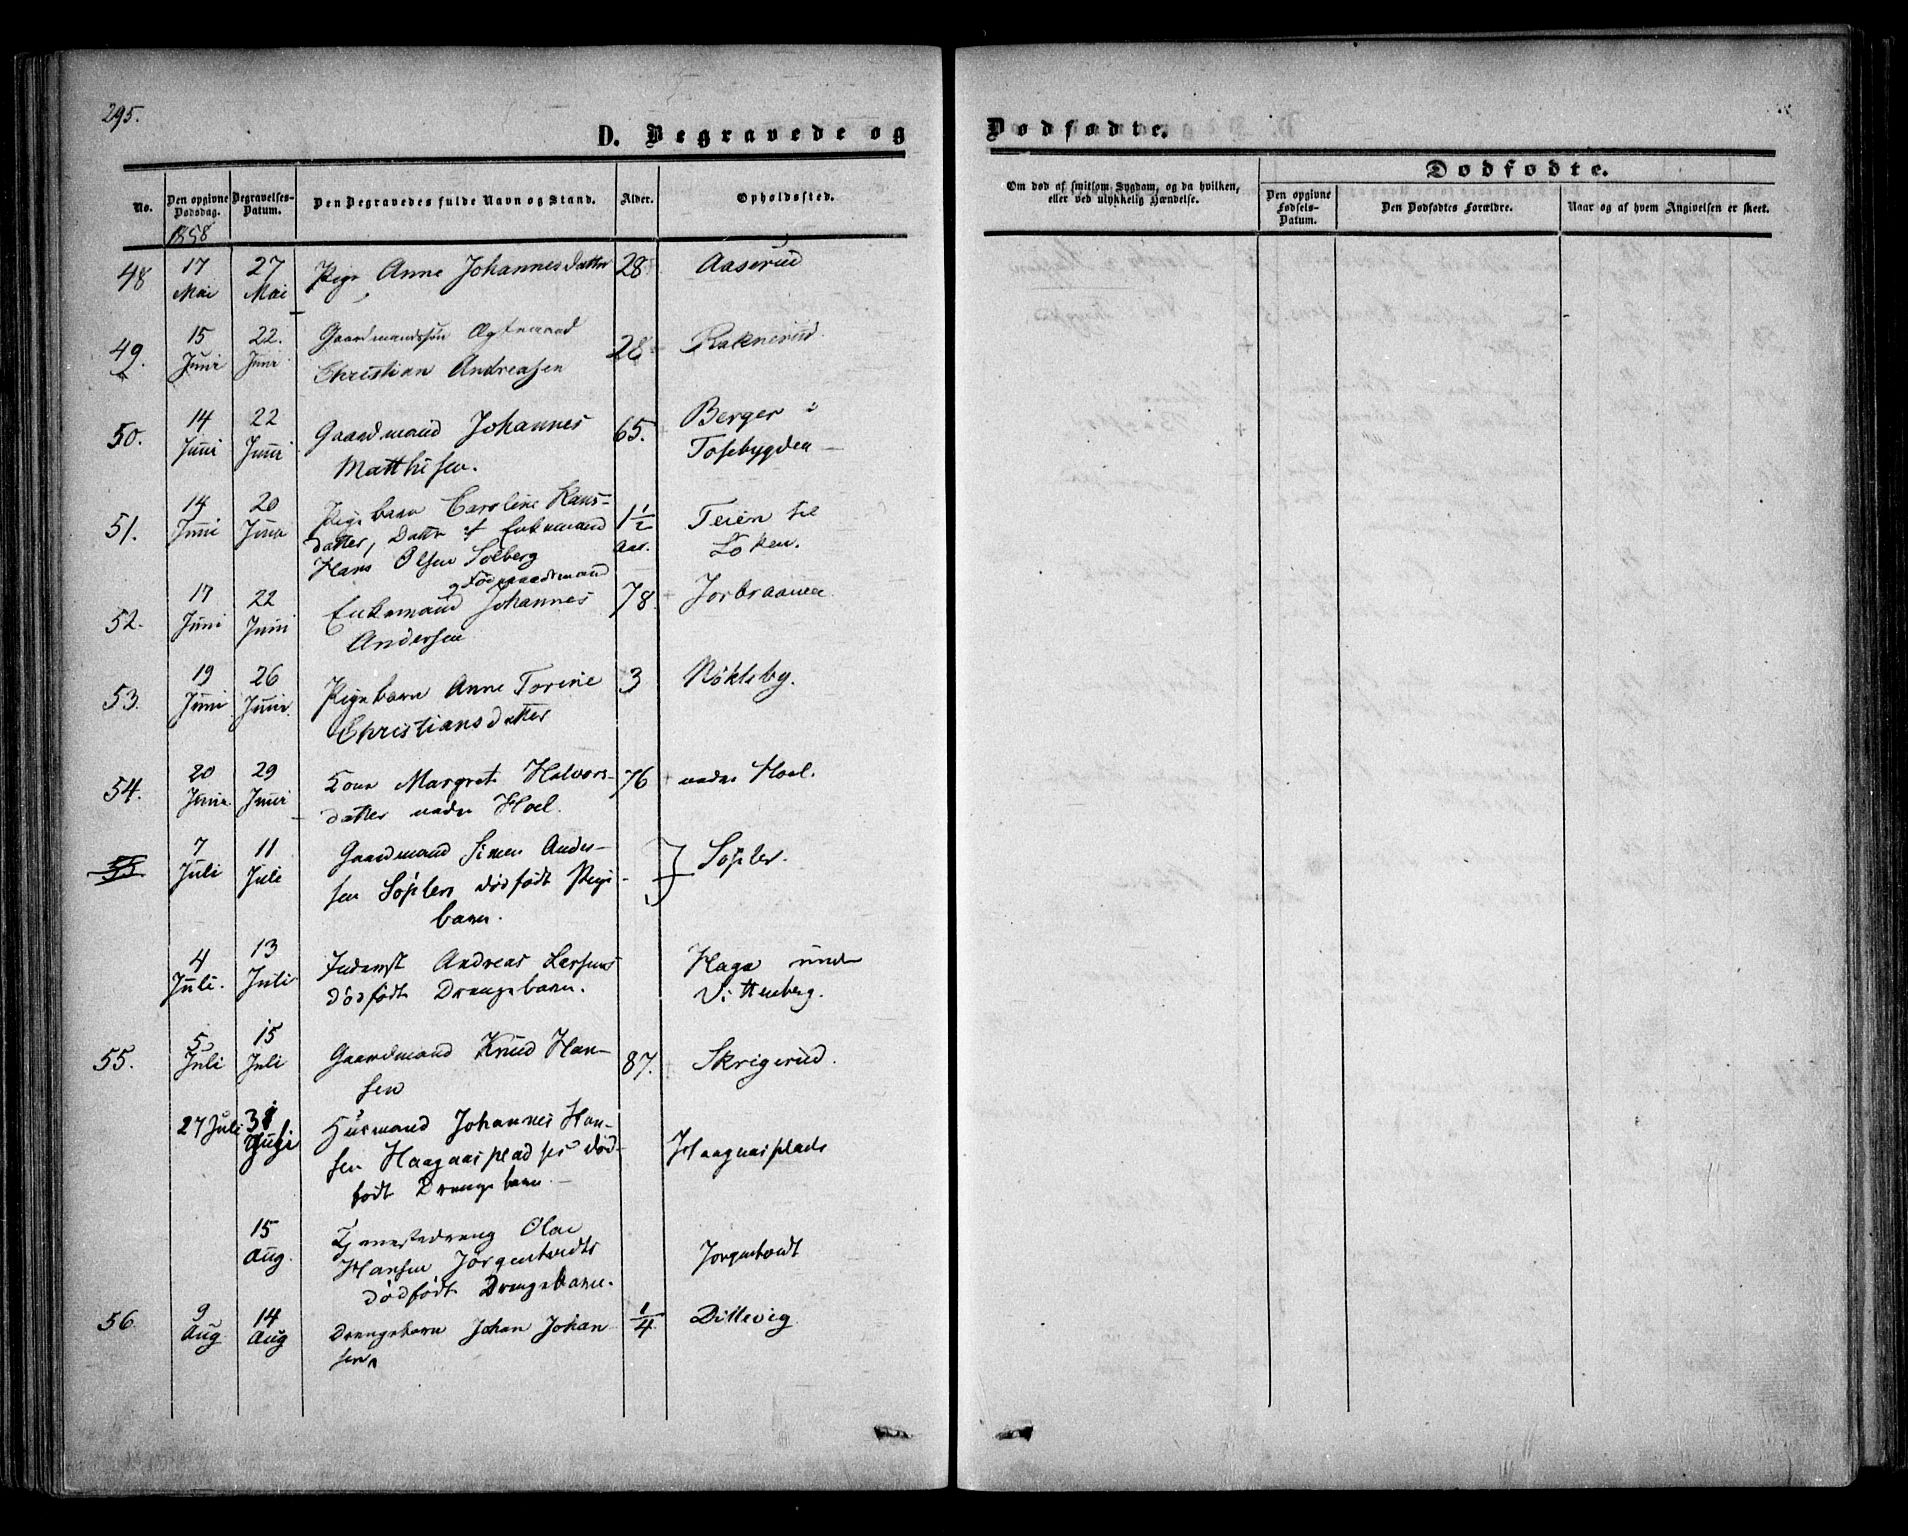 295.
D. Begravede og
Dødfødte.
No.
Den opgivne Dødsdag.
Begravelses-Datum.
Den Begravedes fulde Navn og Stand.
Alder.
Opholdssted.
Om død af smitsom Sygdom, og da hvilken, eller ved ulykkelig Hændelse.
Dødfødte.
Den opgivne Fødsels-Datum.
Den Dødfødtes Forældre.
Naar og af hvem Angivelsen er skeet.
1858
48 17 Mai 27 Mai Pige Anne Johannesdatter 28 Aaserud
49. 15 Juni 22. Juni Gaardmandssøn Ægtemand
Christian Andreasen 28 Raknerud
50. 14 Juni 22 Juni Gaardmand Johannes 65. Berger i
Matthisen. Tosebygden
51. 14 Juni 20 Juni Pigebarn Caroline Hans- 1½ Aar. Teien til
datter, Datter af Enkemand Löken.
Hans Olsen Solberg
52. 17 Juni 22 Juni Enkemand og Födraadsmand Johannes 78. Jorbraaten
Andersen
53. 19 Juni 26 Juni Pigebarn Anne Torine 3 Nökleby.
Christiansdatter
54. 20 Juni 29 Juni Kone Margrete Halvors- 76 under Hoel.
datter under Hoel.
55 7 Juli 11 Juli Gaardmand Simen Ander- Söplen.
sen Söplen dödfödt Pige-
barn.
4 Juli. 13 Juli Inderst Andreas Larsens Haga under
dödfödt Drengebarn. Vittenberg.
55. 5 Juli 15 Juli Gaardmand Knud Han- 87. Skrigerud.
sen
27 Juli 31 Juli Husmand Johannes Han-
sen Haagaaspladses död- Haagaasplads
födt Drengebarn.
15 Aug. Tjenestedreng Olai
Hansen Jörgentvedts Jörgentvedt
dödfödt Drengebarn.
56. 9 Aug 14 Aug Drengebarn Johan Johan ¼ Dillevig
sen